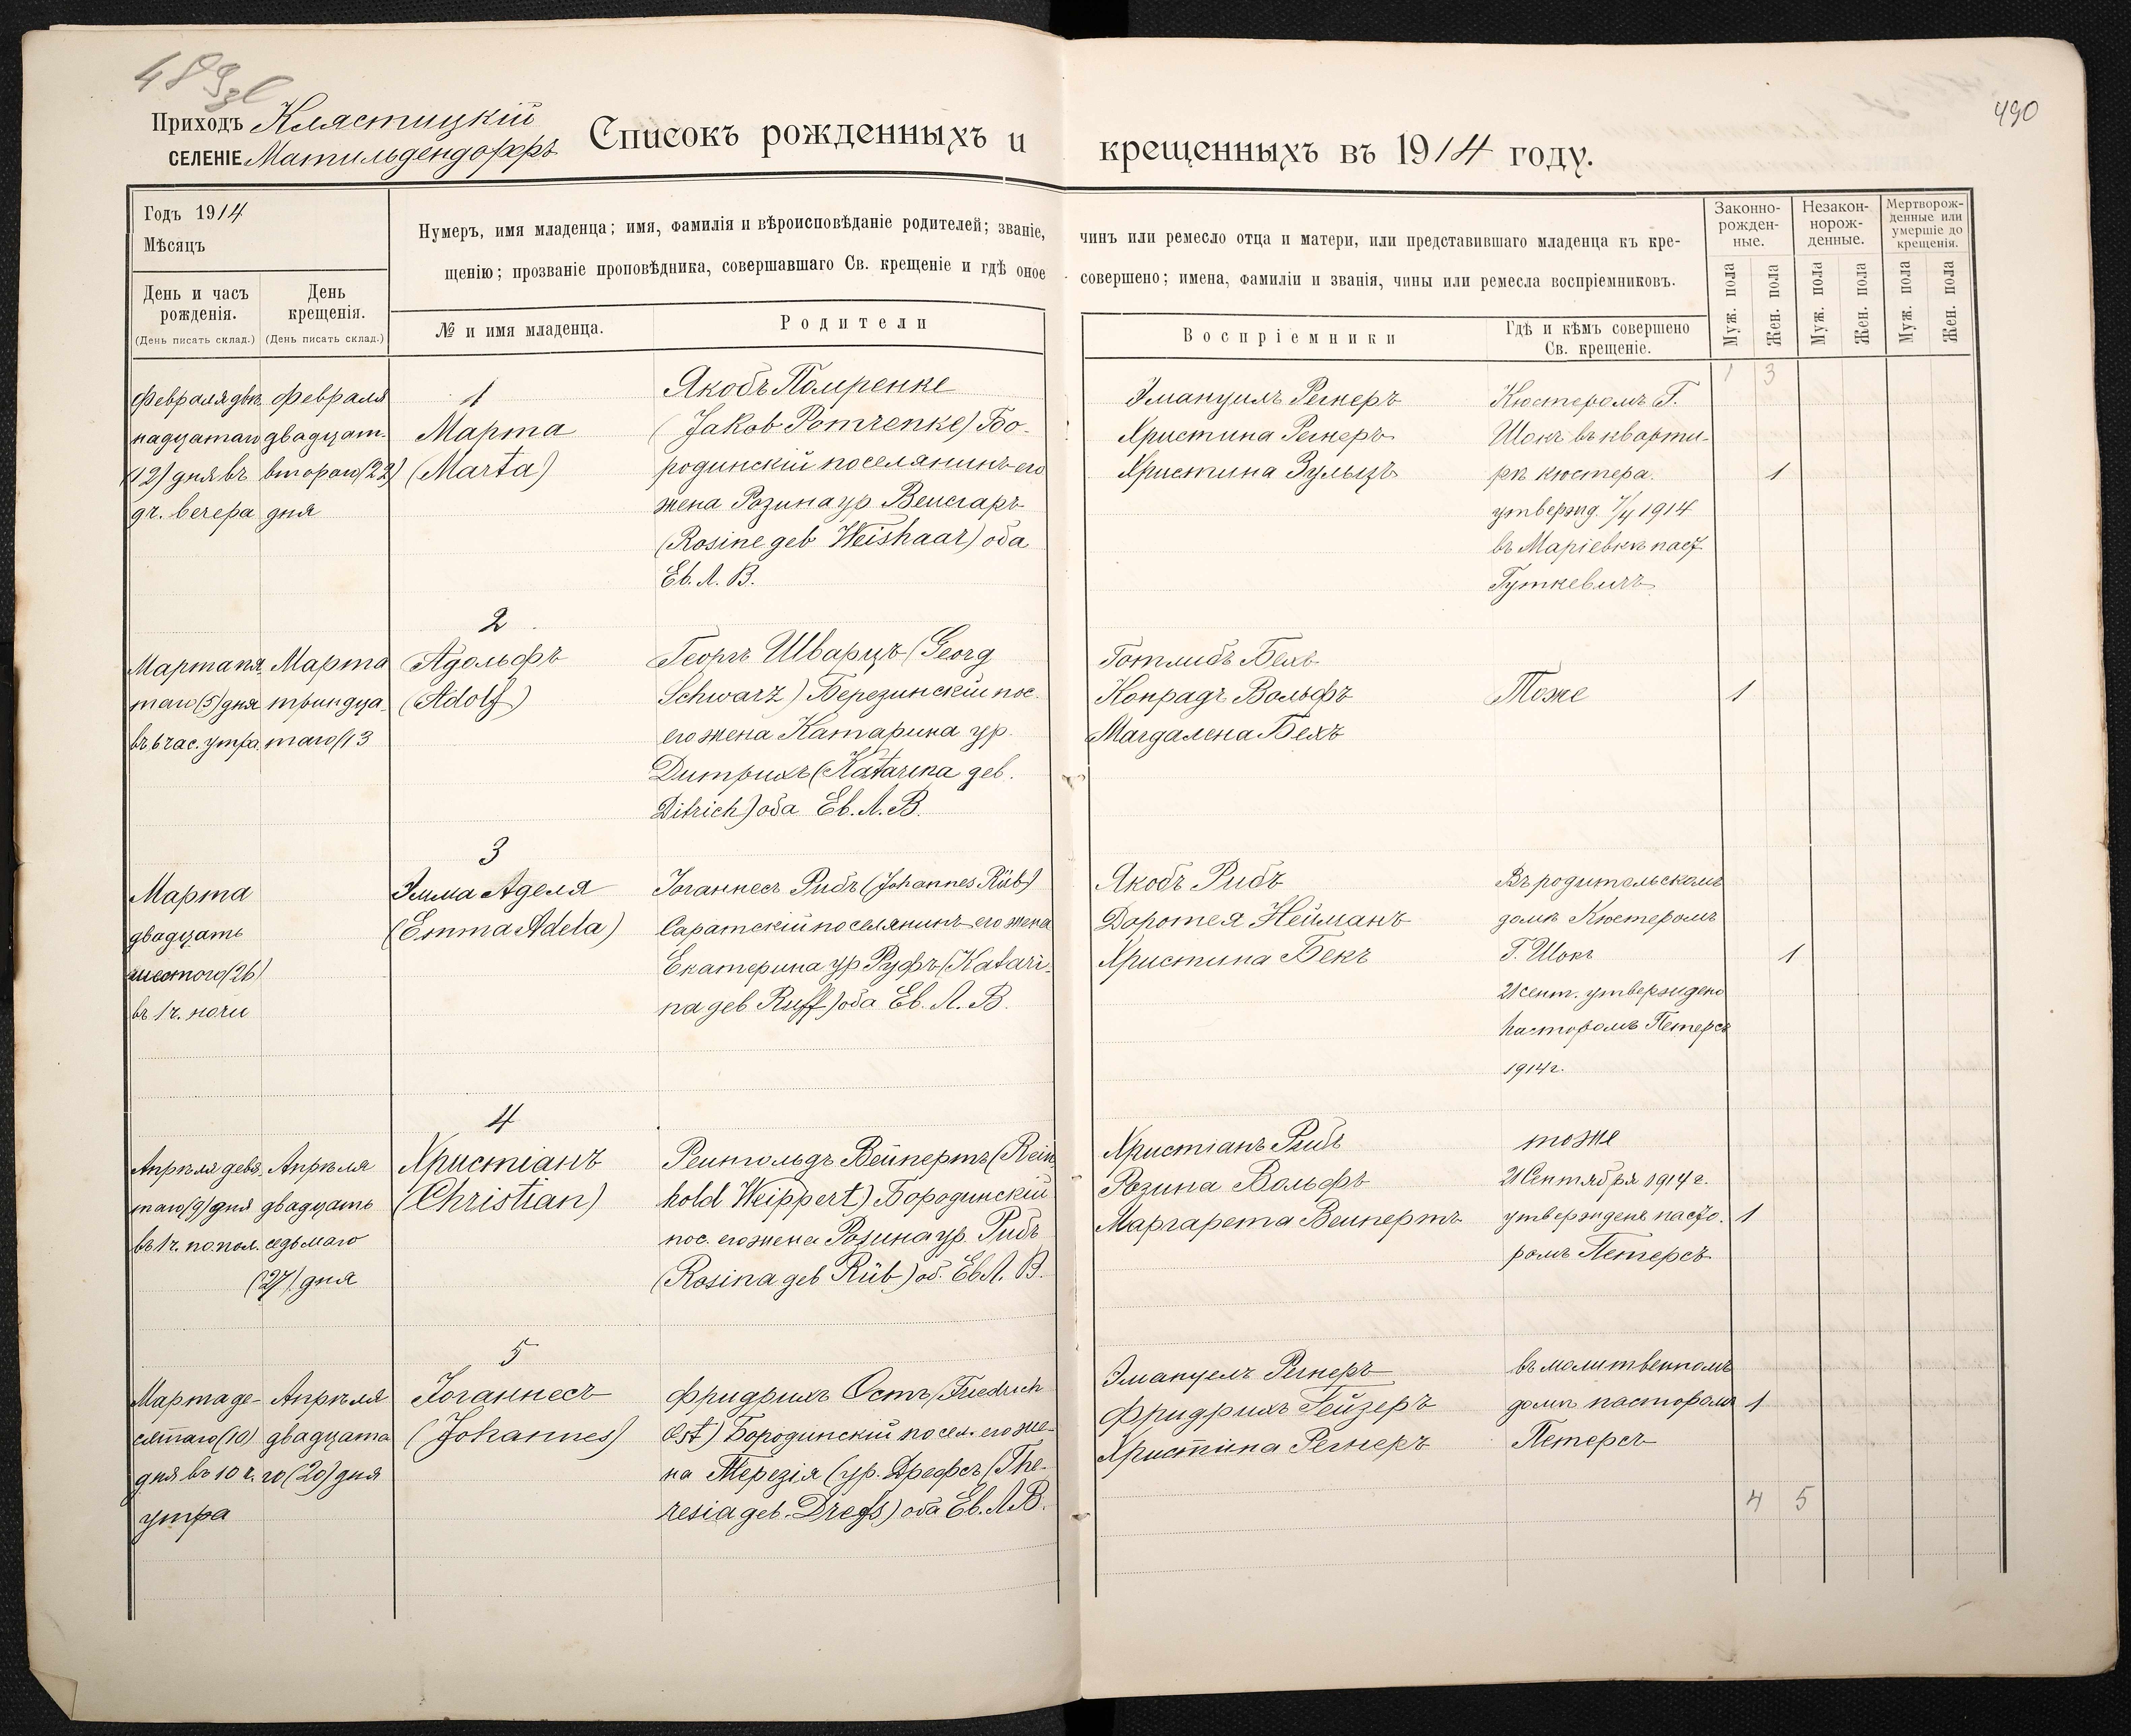 490
Приходъ Клястицкій
СЕЛЕНІЕ Матильдендорфъ
Списокъ рожденныхъ и крещенныхъ въ 1914 году.
Годъ 1914
Мѣсяцъ
День и часъ рожденія.
(День писать склад.)
День крещенія.
(День писать склад.)
Нумеръ, имя младенца; имя, фамилія и вѣроисповѣданіе родителей; званіе, чинъ или ремесло отца и матери, или представившаго младенца къ кре-
щенію; прозваніе проповѣдника, совершавшаго Св. крещеніе и гдѣ оное совершено; имена, фамиліи и званія, чины или ремесла воспріемниковъ.
№ и имя младенца.
Родители
Воспріемники
Гдѣ и кѣмъ совершено
Св. крещеніе.
Законно-
рожден-
ные.
Незакон-
норож-
денные.
Мертворож-
денные или
умершіе до
крещенія.
Муж. пола
Жен. пола
Муж. пола
Жен. пола
Муж. пола
Жен. пола
1 3
Февраля двѣ
надцатаго
(12) дня въ
9 ч. вечера
Февраля
двадцат.
второго (22)
дня
1
Марта
(Marta)
Якобъ Помренке
(Jakob Pomrenke) Бо-
родинскій поселянинъ его
жена Розина ур Веисгаръ
(Rosine geb Weishaar) оба
Ев. Л. В.
Эмануилъ Регнеръ
Христина Регнеръ
Христина Зульцъ
Кюстеромъ Г.
Шокъ въ кварти-
рѣ кюстера.
утвержд. 7/4 1914
въ Маріевкѣ паст.
Гуткевичъ
1
Марта пя-
таго (5) дня
въ 6 час. утра
Марта
триндца-
таго (13
2
Адольфъ
(Adolf)
Георгъ Шварцъ (Georg
Schwarz) Березинскій пос.
его жена Катарина ур.
Дитрихъ (Katarina geb.
Ditrich) оба Ев. Л. В.
Готлибъ Бехъ
Конрадъ Вольфъ
Магдалена Бехъ
Тоже
1
Марта
двадцать
шестого (26)
въ 1 ч. ночи
3
Эмма Аделя
(Emma Adela)
Іоганнесъ Рибъ (Johannes Rüb)
Саратскій поселянинъ его жена
Екатерина ур Руфъ (Katari-
na geb Ruff) оба Ев. Л. В.
Якобъ Рибъ
Доротея Нейманъ
Христина Бекъ
Въ родительскомъ
домѣ Кюстеромъ
Г. Шокъ
21 сент. утверждено
пасторомъ Петерсъ
1914 г.
1
Апрѣля девя-
таго (9) дня
въ 1 ч. по пол.
Апрѣля
двадцать
седьмаго
(27) дня
4
Христіанъ
(Christian)
Реингольдъ Вейпертъ (Rein
hold Weippert) Бородинскій
пос. его жена Розина ур. Рибъ
(Rosina geb Rüb) об. Ев Л. В.
Христіанъ Рибъ
Розина Вольфъ
Маргарета Веипертъ
тоже
21 Сентября 1914 г.
утвержденъ пасто-
ромъ Петерсъ
1
Марта де-
сятаго (10)
дня въ 10 ч.
утра
Апрѣля
двадцата
го (20) дня
5
Іоганнесъ
(Johannes)
Фридрихъ Остъ (Friedrich
Ost) Бородинскій посел. его же-
на Терезія (ур. Дрефсъ (The-
resia geb. Drefs) оба Ев. Л В.
Эмануелъ Регнеръ
Фридрихъ Гейзеръ
Христина Регнеръ
въ молитвенномъ
домѣ пасторомъ
Петерсъ
1
4 5